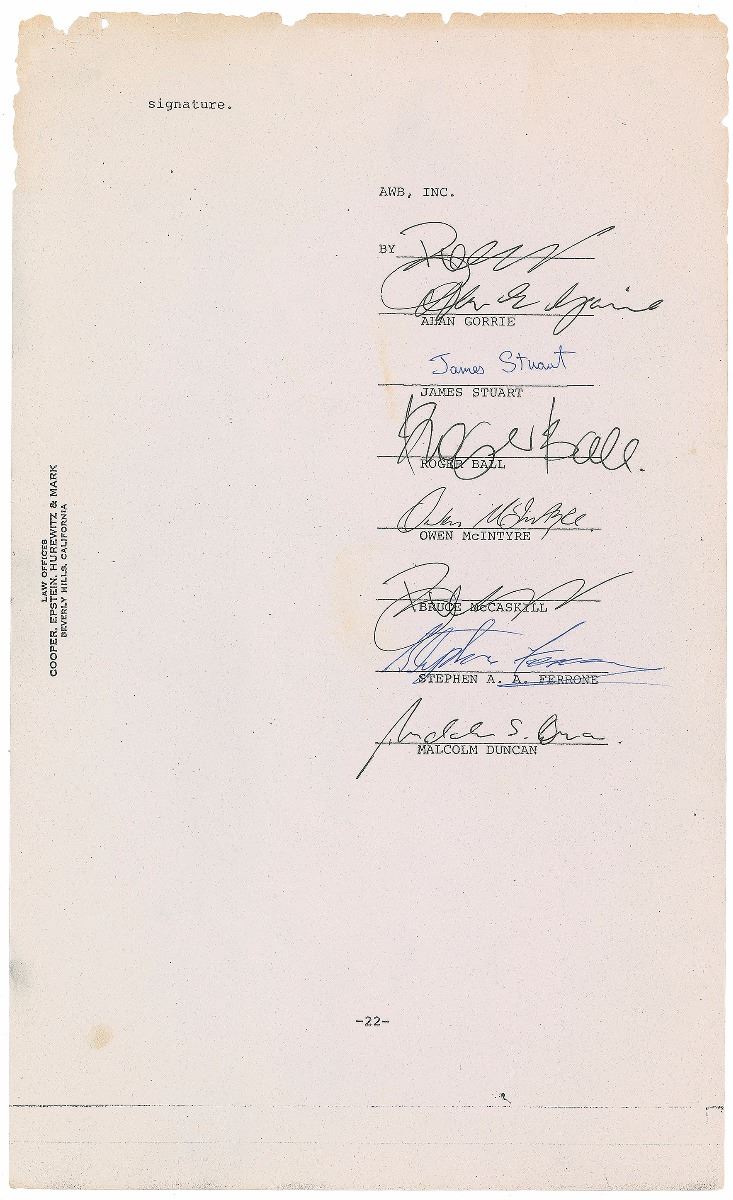 signature.
AWB, INC.
BY
ALAN GORRIE
James Stuart
JAMES STUART
Roger Ball.
ROGER BALL
Owen McIntyre
OWEN McINTYRE
BRUCE McCASKILL
Stephen Ferrone
STEPHEN A. A. FERRONE
MALCOLM DUNCAN
LAW OFFICES
COOPER, EPSTEIN, HUREWITZ & MARK
BEVERLY HILLS, CALIFORNIA
-22-